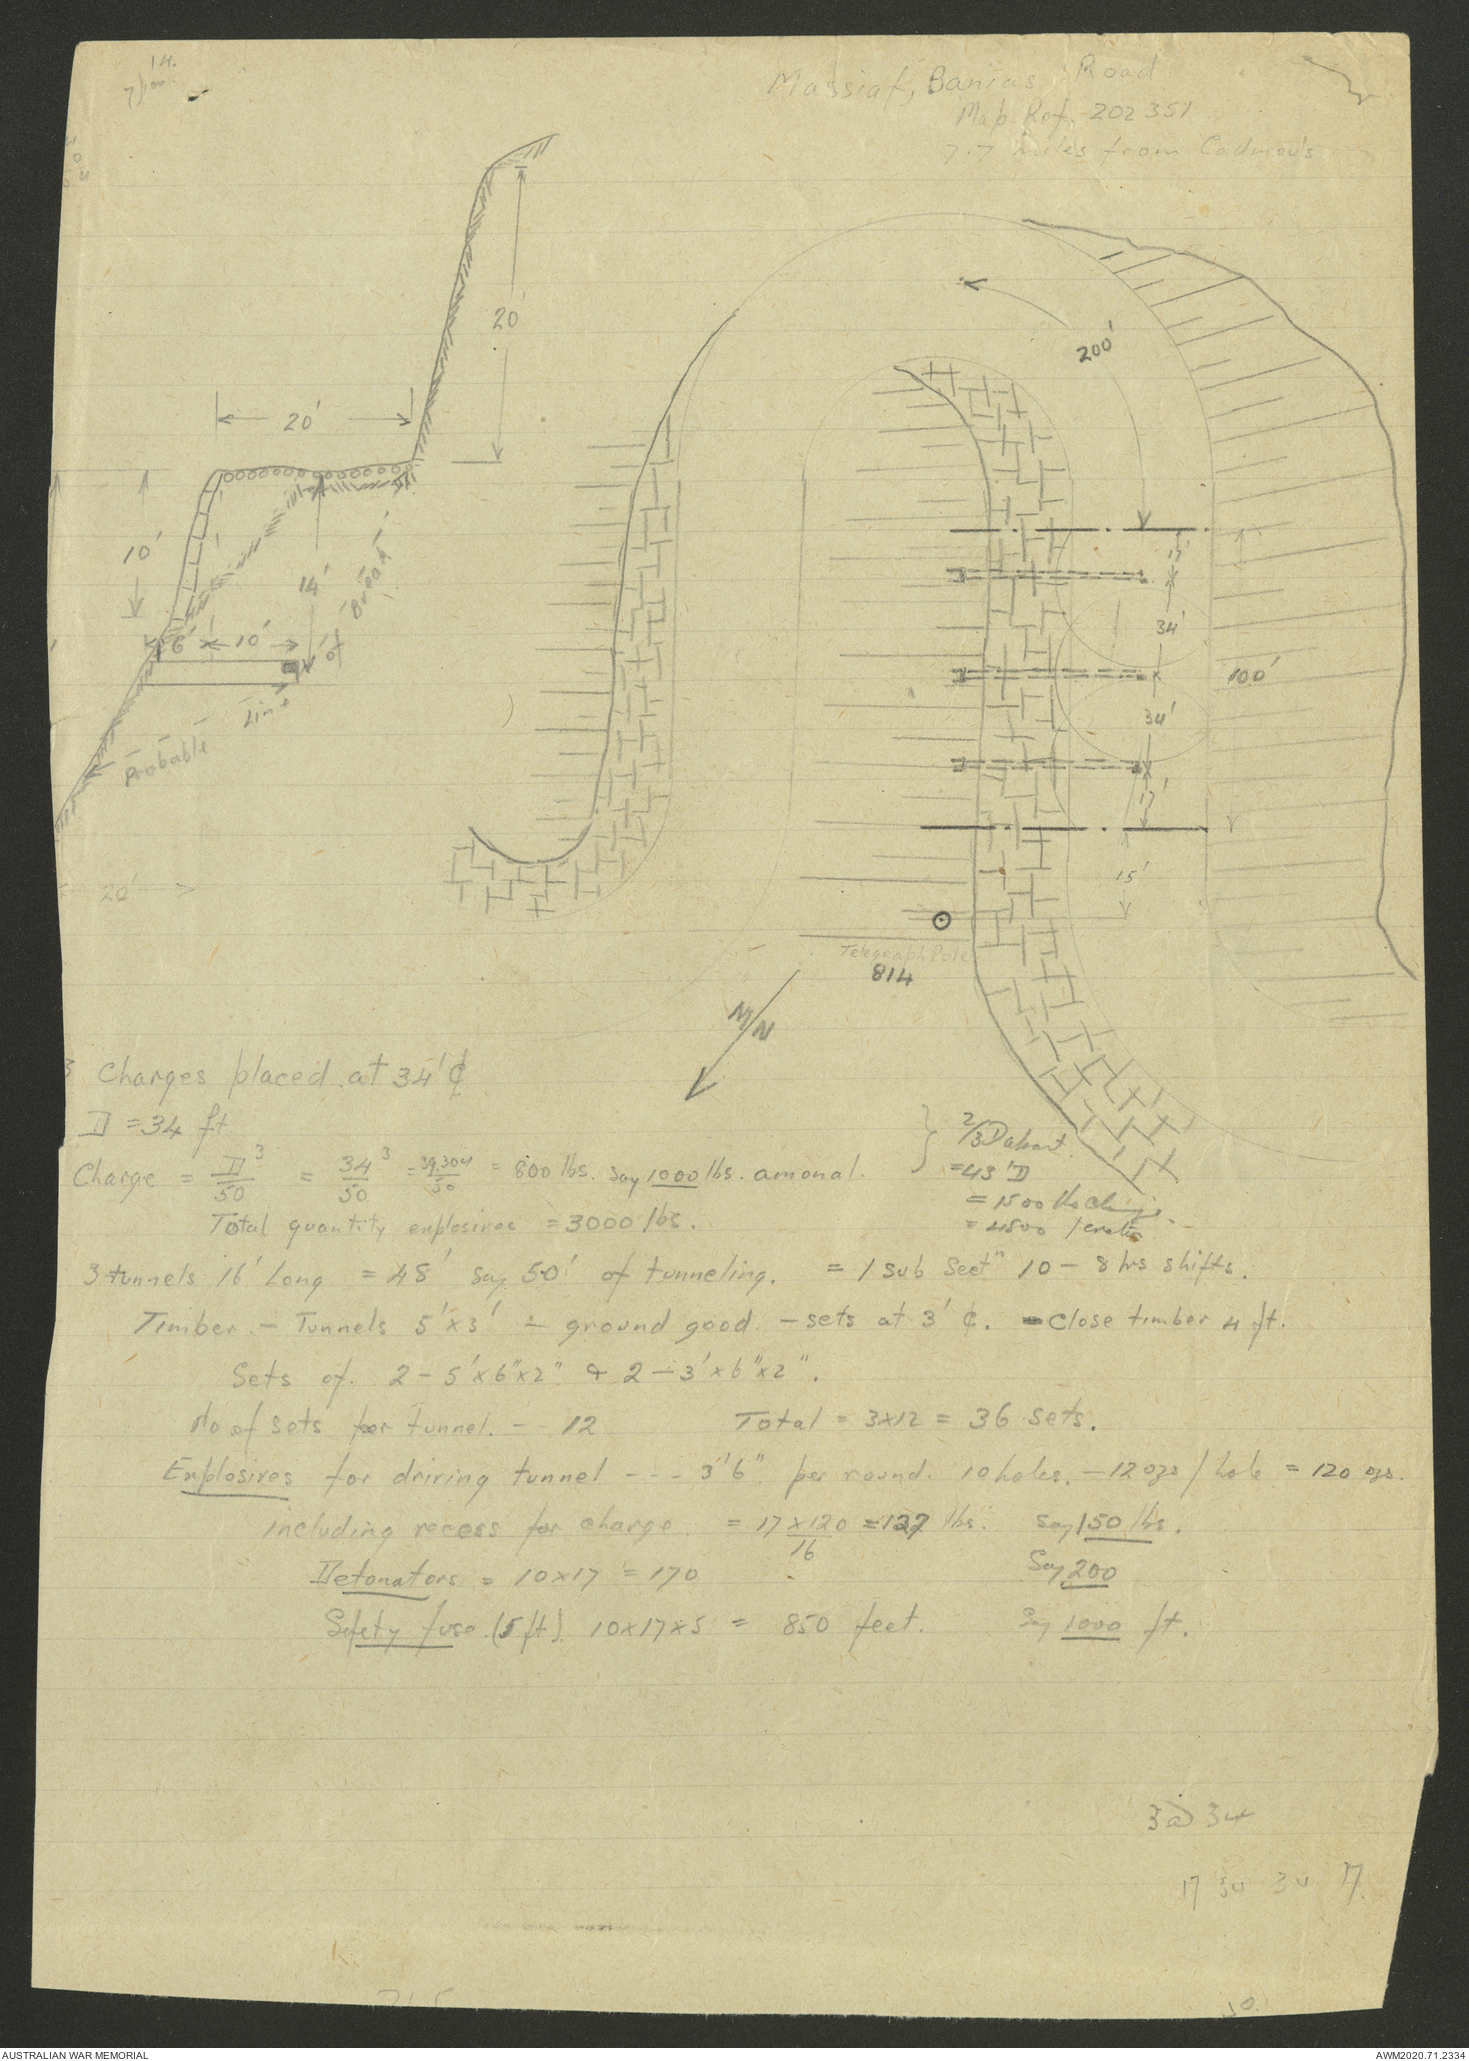 14.
7)100
Massiaf, Banias Road
Map Ref. 202351
7.7 miles from Cadmous
20'
20'
10'
14'
6' 10'
Probable Line of Break
20'
200'
17'
34'
100'
34'
17'
15'
Telegraph Pole
814
MN
3 Charges placed at 34' ₵
D = 34 ft
Charge = D³/50 = 34³/50 = 39,304/50 = 800 lbs. Say 1000 lbs. amonal.
Total quantity explosives = 3000 lbs.
} 2/3 D apart
= 43' D
= 1500 lbs
= 4500 / crater
3 tunnels 16' Long = 48' Say 50' of tunneling. = 1 Sub Sectn 10 - 8 hrs shifts.
Timber. - Tunnels 5'x3' - ground good. - sets at 3' ₵. - Close timber 4 ft.
Sets of. 2 - 5'x6"x2" & 2 - 3'x6"x2".
No of sets per tunnel. - - 12 Total = 3x12 = 36 sets.
Explosives for driving tunnel - - - 3'6" per round. 10 holes. - 12 ozs / hole = 120 ozs.
including recess for charge. = 17 x 120/16 = 127 lbs. Say 150 lbs.
Detonators = 10x17 = 170 Say 200
Safety fuse. (5 ft). 10x17x5 = 850 feet. Say 1000 ft.
3 @ 34
17 34 34 17
AUSTRALIAN WAR MEMORIAL
AWM2020.71.2334